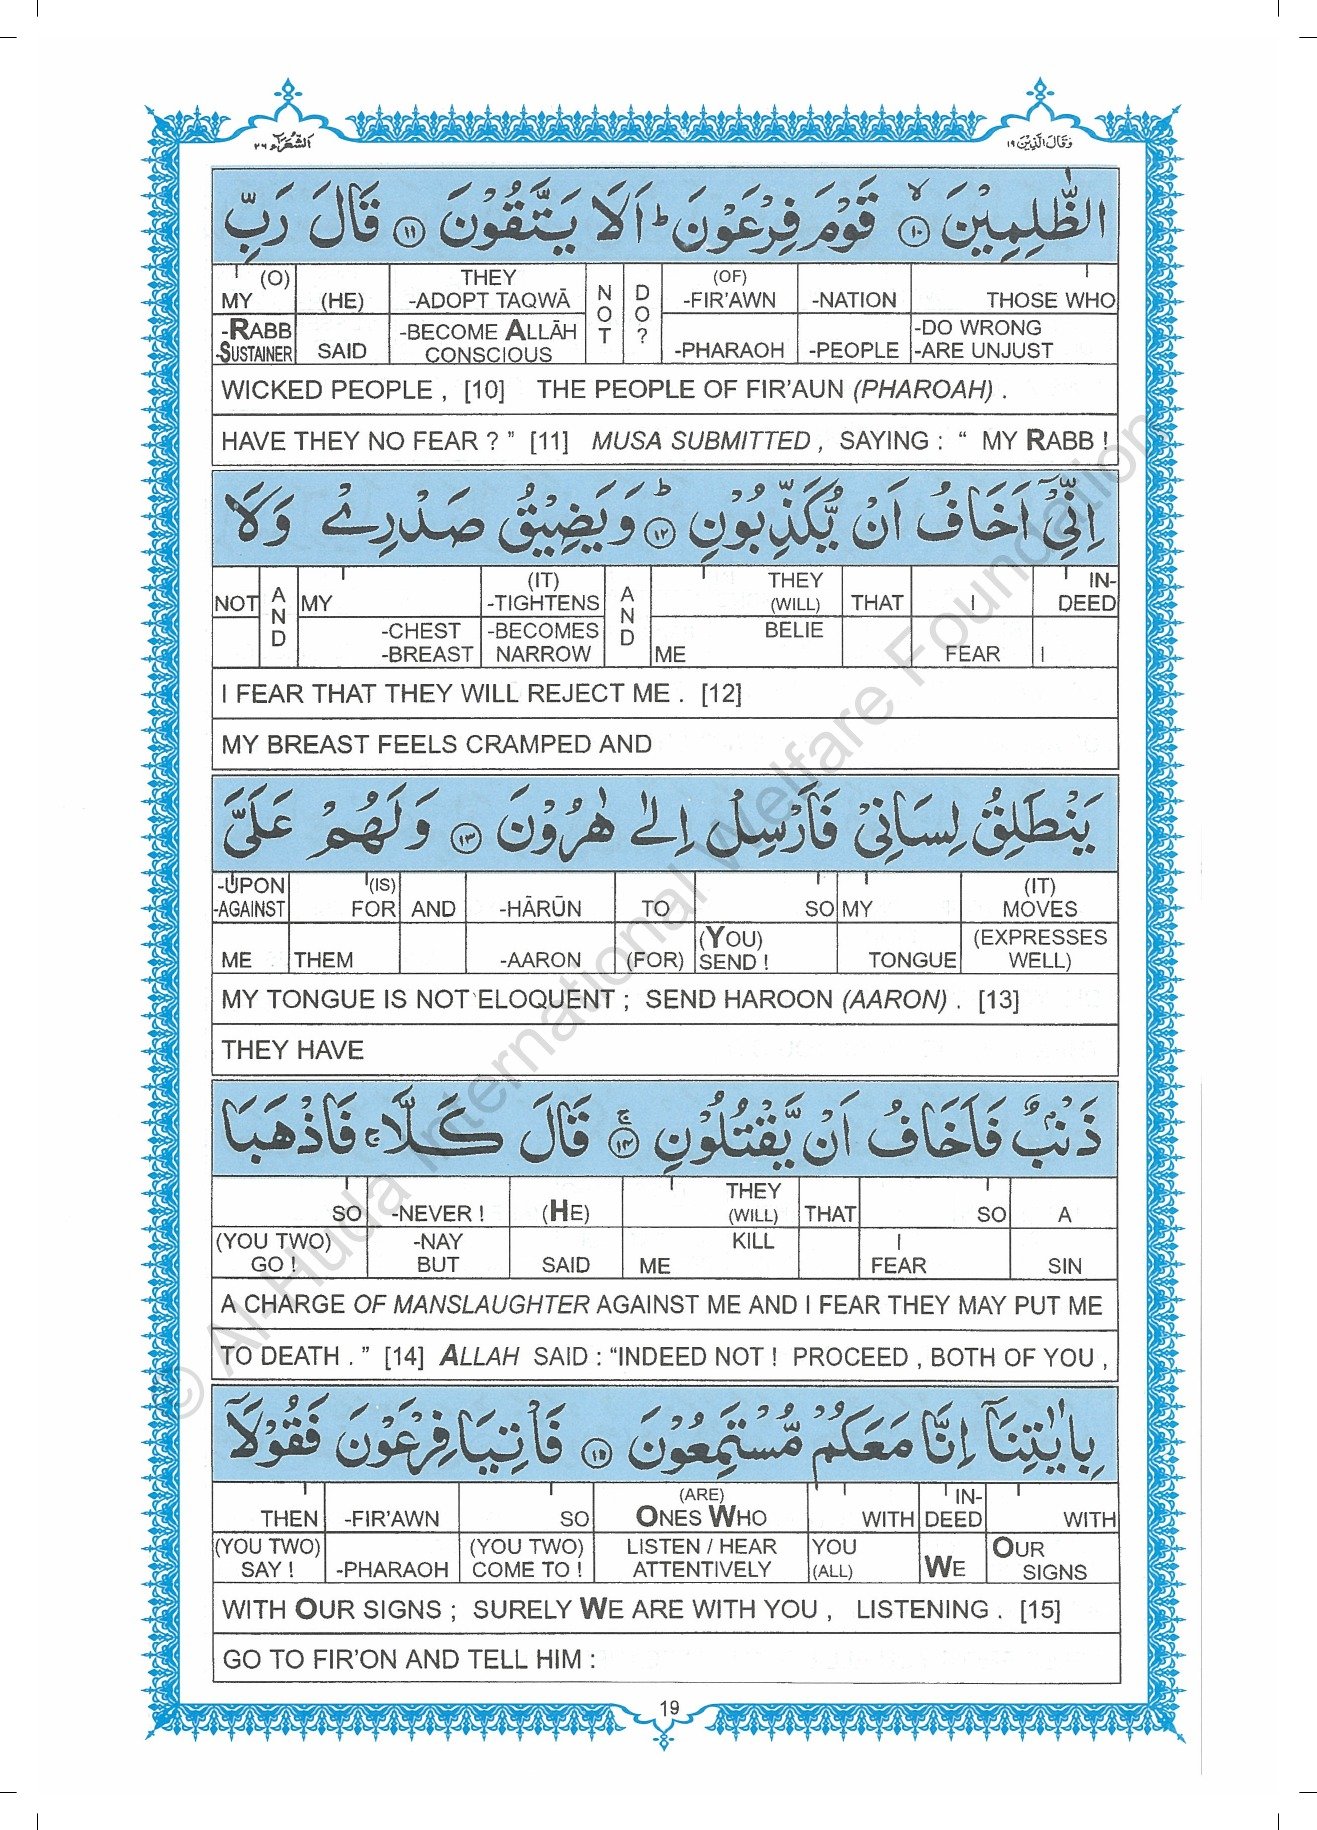 وَقَالَ الَّذِيْنَ ١٩
اَلشُّعَرَآء ٢٦
الظّٰلِمِيْنَ ۙ ١٠ قَوْمَ فِرْعَوْنَ ؕ اَلَا يَتَّقُوْنَ ١١ قَالَ رَبِّ
(O) MY (HE) THEY -ADOPT TAQWĀ NOT DO? (OF) -FIR'AWN -NATION THOSE WHO
-RABB -SUSTAINER SAID -BECOME ALLĀH CONSCIOUS -PHARAOH -PEOPLE -DO WRONG -ARE UNJUST
WICKED PEOPLE , [10] THE PEOPLE OF FIR'AUN (PHAROAH) .
HAVE THEY NO FEAR ? ” [11] MUSA SUBMITTED , SAYING : “ MY RABB !
اِنِّيْۤ اَخَافُ اَنْ يُّكَذِّبُوْنِ ؕ ١٢ وَيَضِيْقُ صَدْرِيْ وَلَا
NOT AND MY (IT) -TIGHTENS AND THEY (WILL) THAT I IN-DEED
-CHEST -BREAST -BECOMES NARROW BELIE ME FEAR I
I FEAR THAT THEY WILL REJECT ME . [12]
MY BREAST FEELS CRAMPED AND
يَنْطَلِقُ لِسَانِيْ فَاَرْسِلْ اِلٰى هٰرُوْنَ ١٣ وَلَهُمْ عَلَيَّ
-UPON -AGAINST (IS) FOR AND -HĀRŪN TO SO MY (IT) MOVES
ME THEM -AARON (FOR) (YOU) SEND ! TONGUE (EXPRESSES WELL)
MY TONGUE IS NOT ELOQUENT ; SEND HAROON (AARON) . [13]
THEY HAVE
ذَنْۢبٌ فَاَخَافُ اَنْ يَّقْتُلُوْنِ ۚ ١٤ قَالَ كَلَّا ۚ فَاذْهَبَا
SO -NEVER ! (HE) THEY (WILL) THAT SO A
(YOU TWO) GO ! -NAY BUT SAID KILL ME I FEAR SIN
A CHARGE OF MANSLAUGHTER AGAINST ME AND I FEAR THEY MAY PUT ME
TO DEATH . ” [14] ALLAH SAID : “INDEED NOT ! PROCEED , BOTH OF YOU ,
بِاٰيٰتِنَاۤ اِنَّا مَعَكُمْ مُّسْتَمِعُوْنَ ١٥ فَاْتِيَا فِرْعَوْنَ فَقُوْلَاۤ
THEN -FIR'AWN SO (ARE) ONES WHO WITH IN-DEED WITH
(YOU TWO) SAY ! -PHARAOH (YOU TWO) COME TO ! LISTEN / HEAR ATTENTIVELY YOU (ALL) WE OUR SIGNS
WITH OUR SIGNS ; SURELY WE ARE WITH YOU , LISTENING . [15]
GO TO FIR'ON AND TELL HIM :
19
© Al-Huda International Welfare Foundation